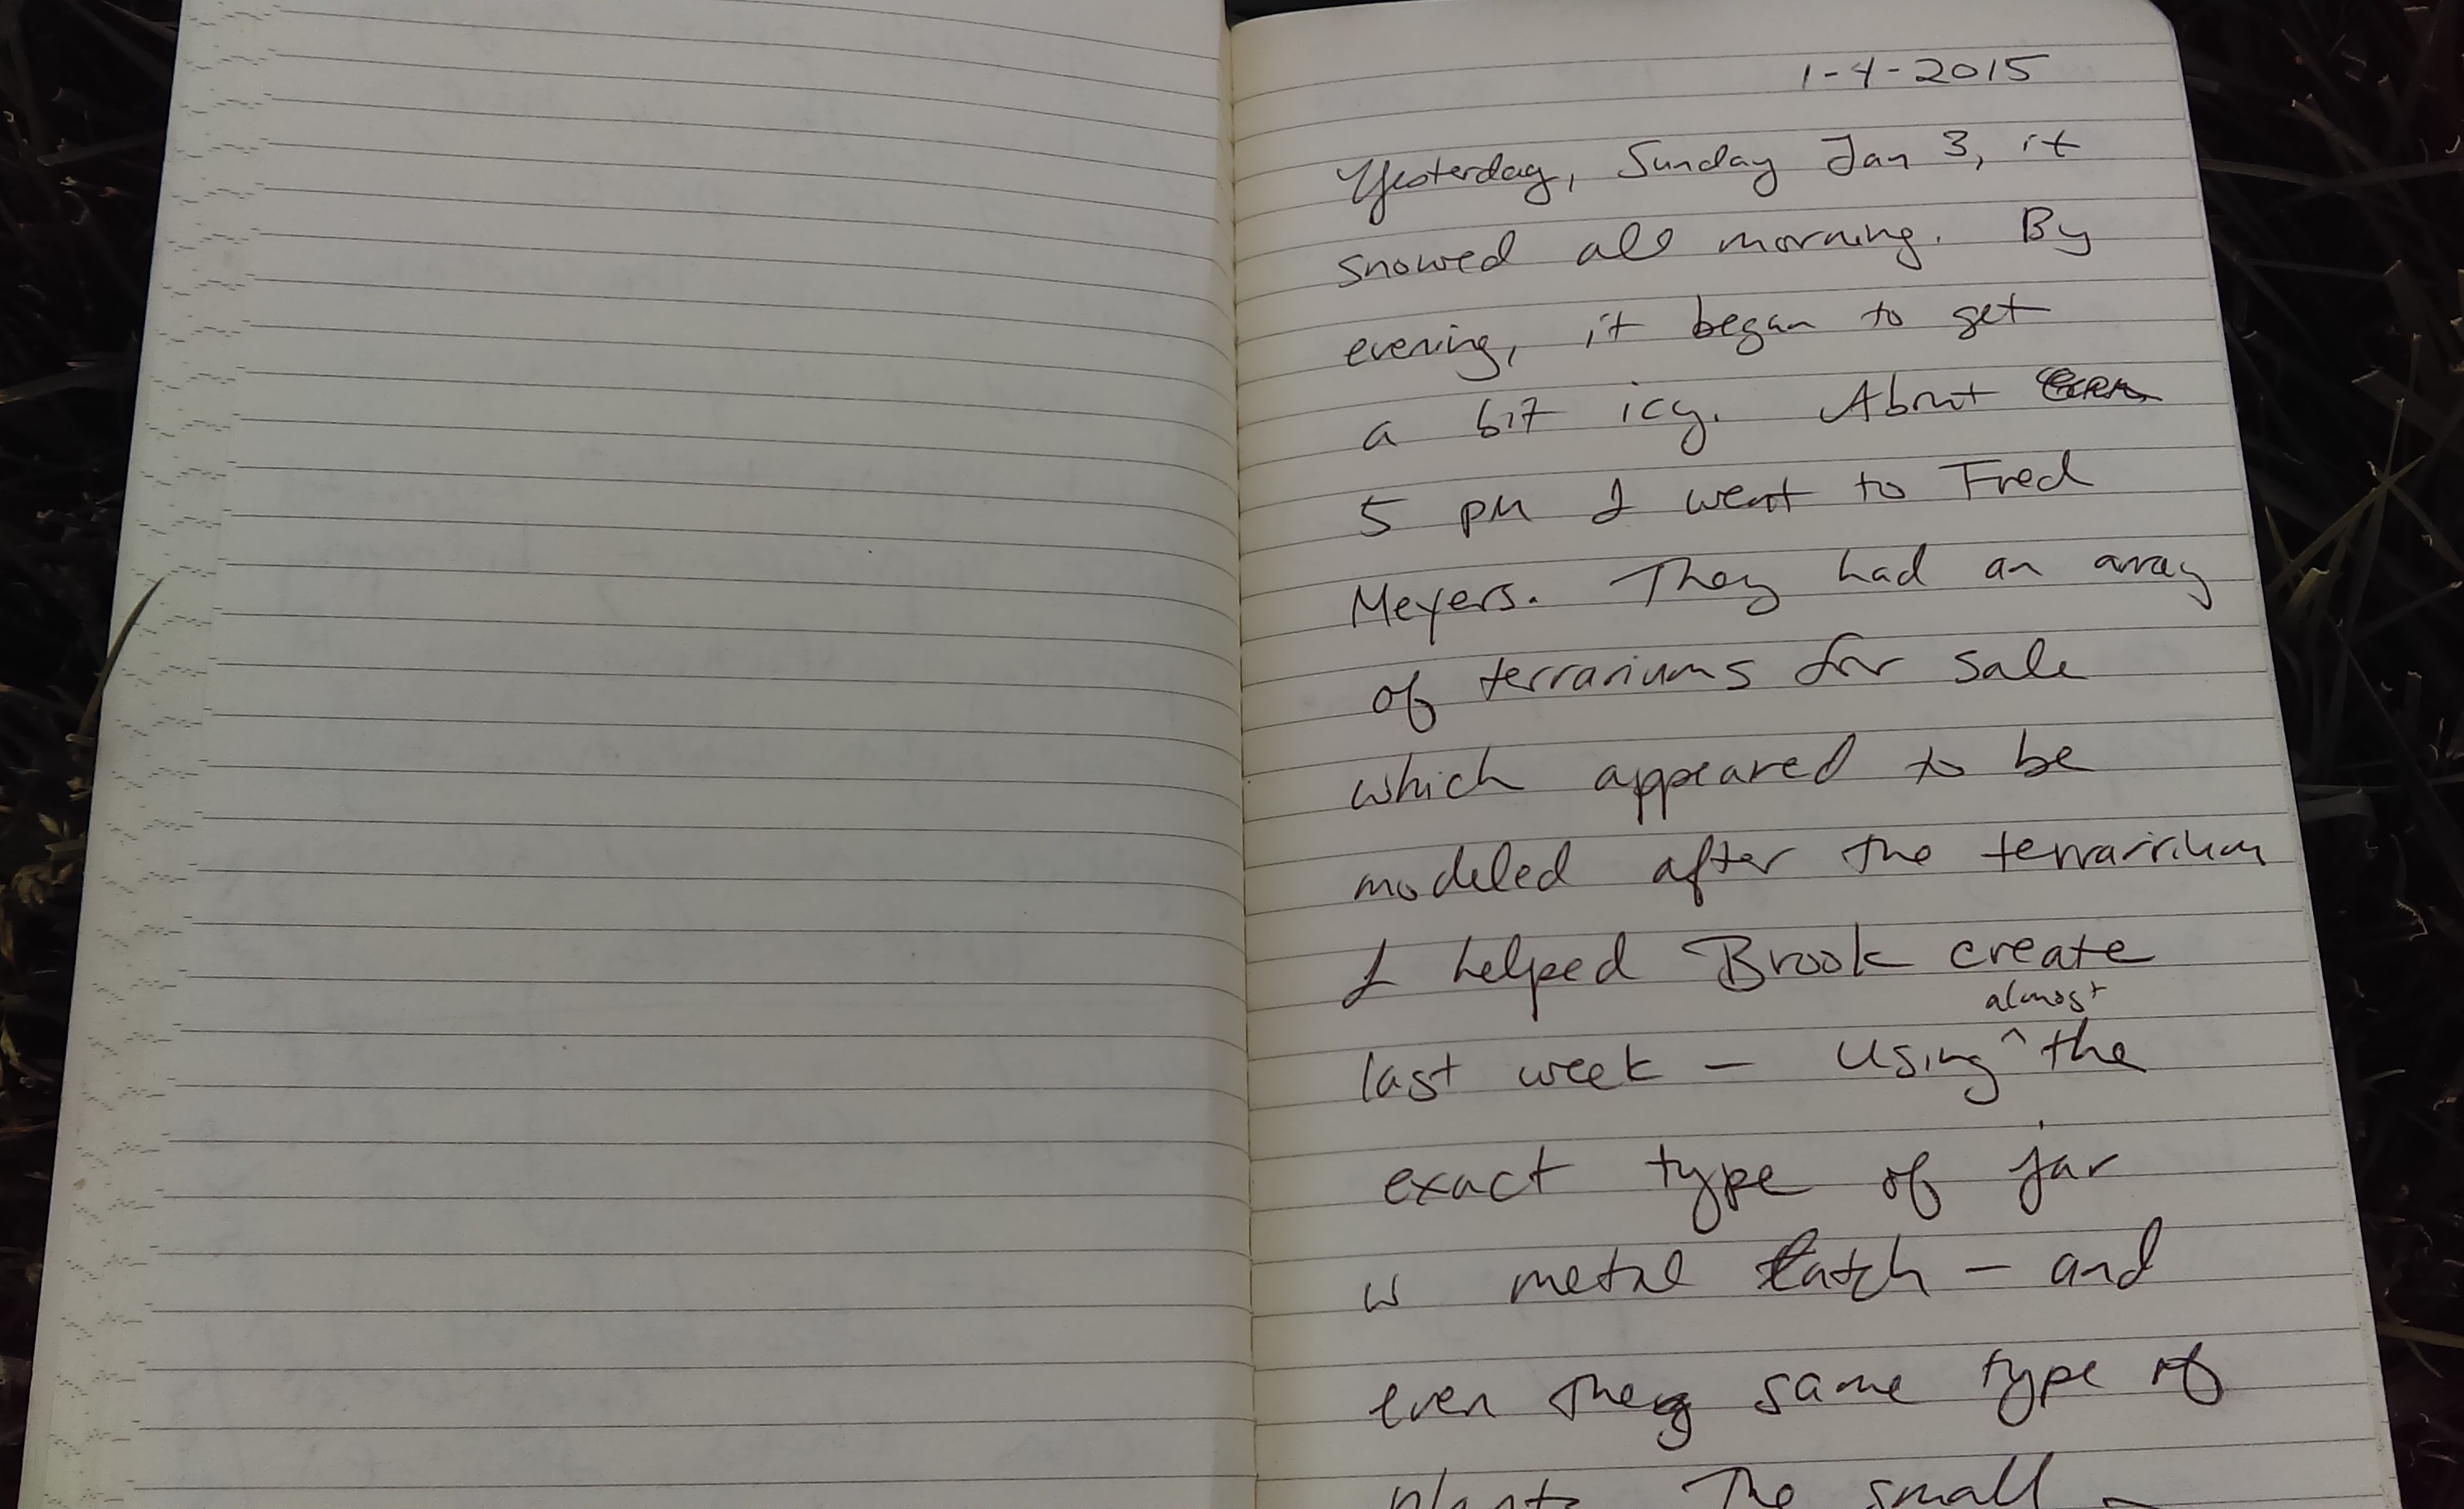 1-4-2015
Yesterday, Sunday Jan 3, it
snowed all morning. By
evening, it began to get
a bit icy. About
5 pm I went to Fred
Meyers. They had an array
of terrariums for sale
which appeared to be
modeled after the terrarrium
I helped Brook create
almost
last week – Using ^ the
exact type of jar
w metal latch – and
even the same type of
plants The small